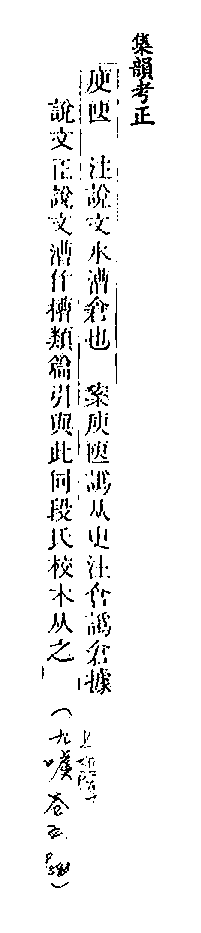 集韻考正
庾㔱 注說文水漕倉也 案庾㔱譌从臾注倉譌仓據
說文正說文漕作槽類篇引與此同段氏校本从之
（九麌 卷五